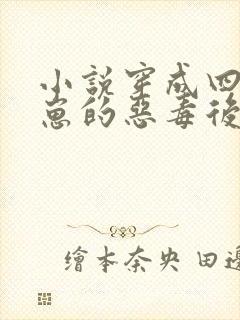 小說穿成四
崽的惡毒後
繪本奈央 田邊